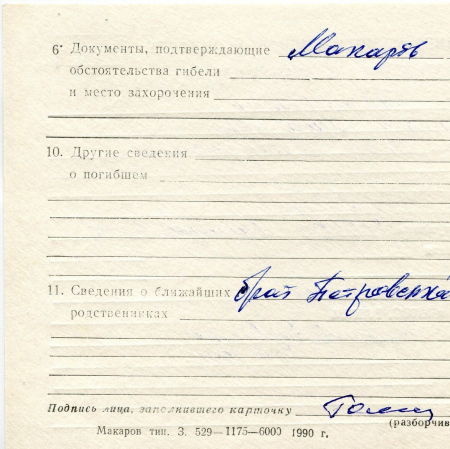 6. Документы, подтверждающие Макаров
обстоятельства гибели
и место захорочения
10. Другие сведения
о погибшем
11. Сведения о ближайших брат Петровенко
родственниках
Подпись лица, заполнившего карточку
(разборчив
Макаров тип. З. 529—1175—6000 1990 г.